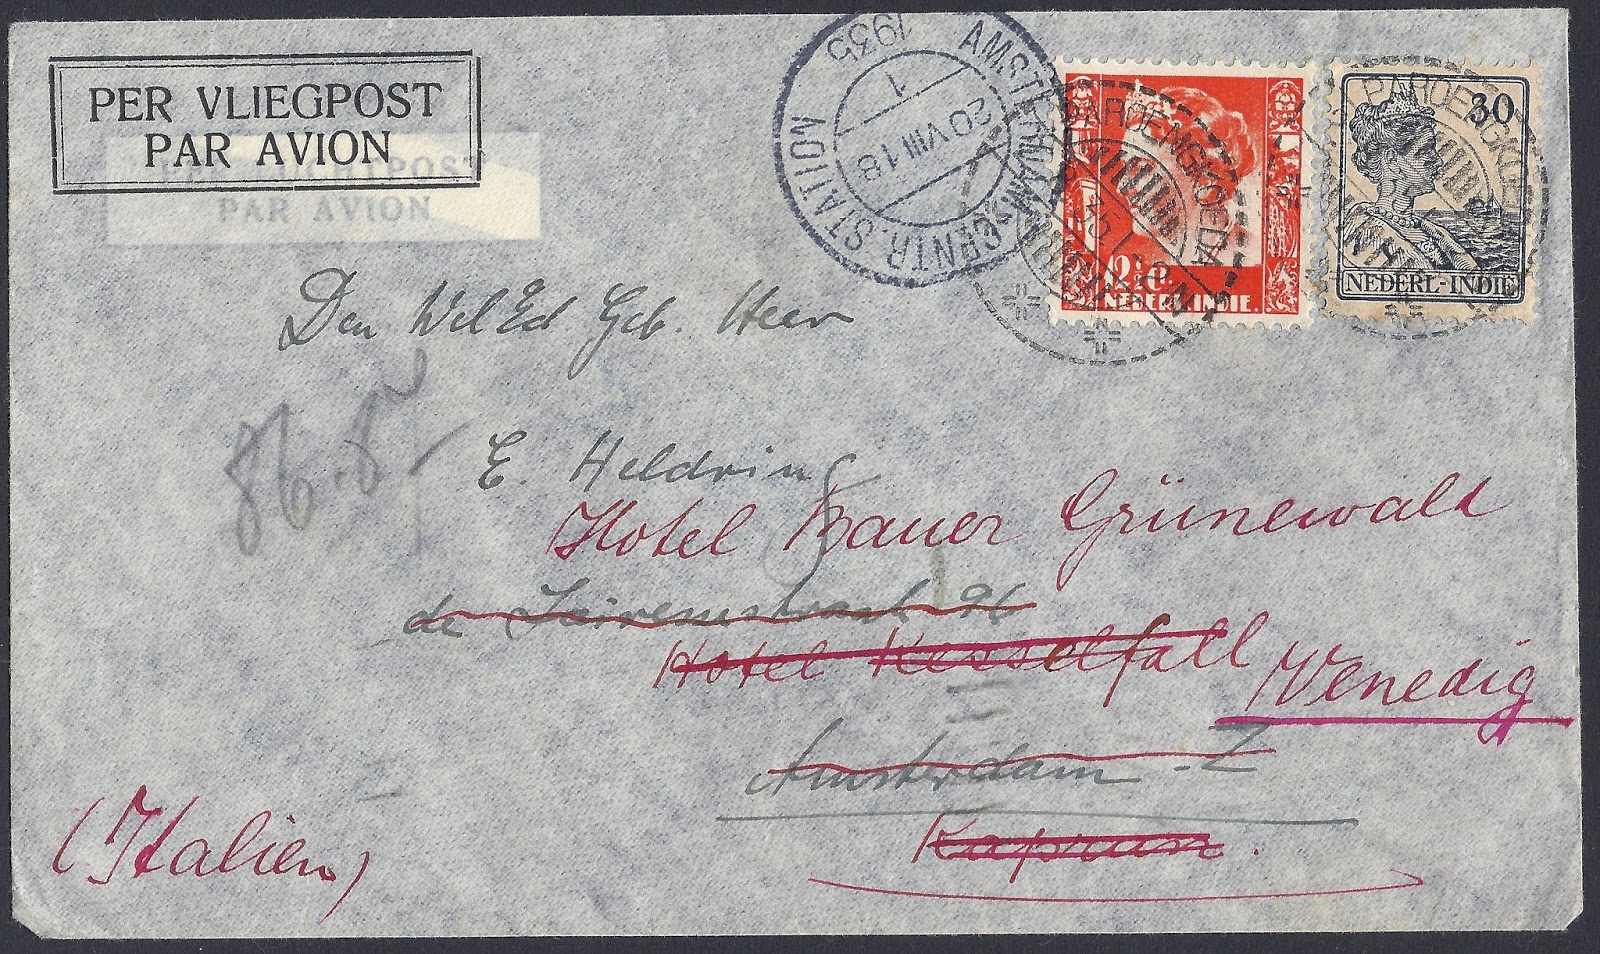 PER VLIEGPOST
PAR AVION
PAR AVION
AMSTERDAM CENTR. STATION
1935
1
20 VIII 18
PAROENGKOEDA
12½ c.
NEDERL. INDIE.
PAROENGKOEDA
30
NEDERL-INDIE
Den Wel Ed Geb. Heer
E. Heldring
Hotel Bauer Grünewald
de 96
Hotel Kesselfall
Venedig
Amsterdam - Z
Kaprun.
(Italien)